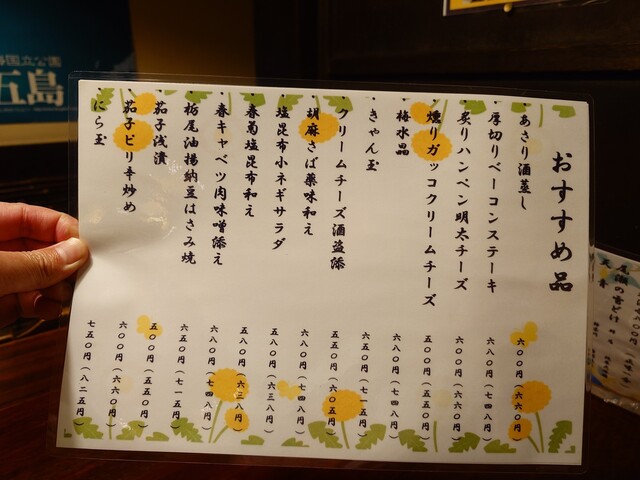 おすすめ品
あさり酒蒸し 六〇〇円(六六〇円)
厚切りベーコンステーキ 六八〇円(七四八円)
炙りハンペン明太チーズ 六〇〇円(六六〇円)
燻りガッコクリームチーズ 五〇〇円(五五〇円)
梅水晶 六八〇円(七四八円)
きゃん玉 六五〇円(七一五円)
クリームチーズ酒盗添 五五〇円(六〇五円)
胡麻さば薬味和え 六八〇円(七四八円)
塩昆布小ネギサラダ 五八〇円(六三八円)
春菊塩昆布和え 五八〇円(六三八円)
春キャベツ肉味噌添え 六八〇円(七四八円)
栃尾油揚納豆はさみ焼 六五〇円(七一五円)
茄子浅漬 五〇〇円(五五〇円)
茄子ピリ辛炒め 六〇〇円(六六〇円)
にら玉 七五〇円(八二五円)
国立公園
五島
尾瀬の雪どけ